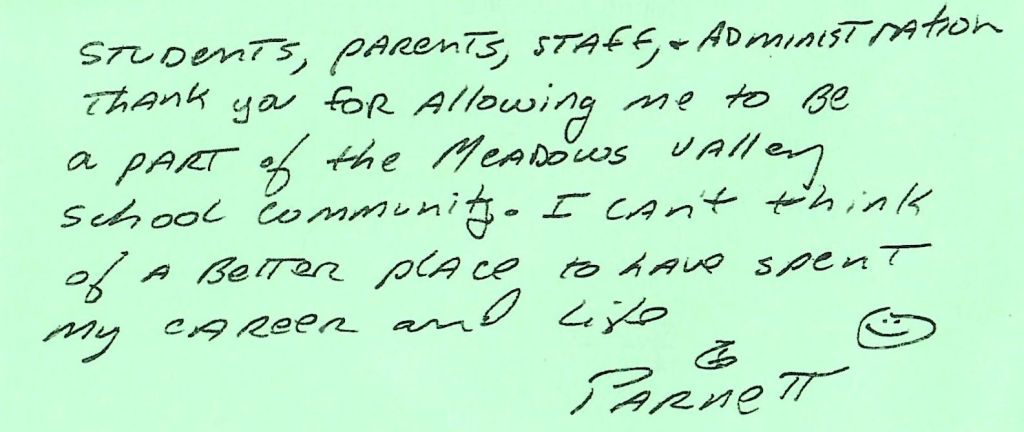 Students, parents, staff, & Administration
Thank you for Allowing me to Be
a part of the Meadows Valley
School community. I can't think
of a Better place to have spent
my career and life
Parnett